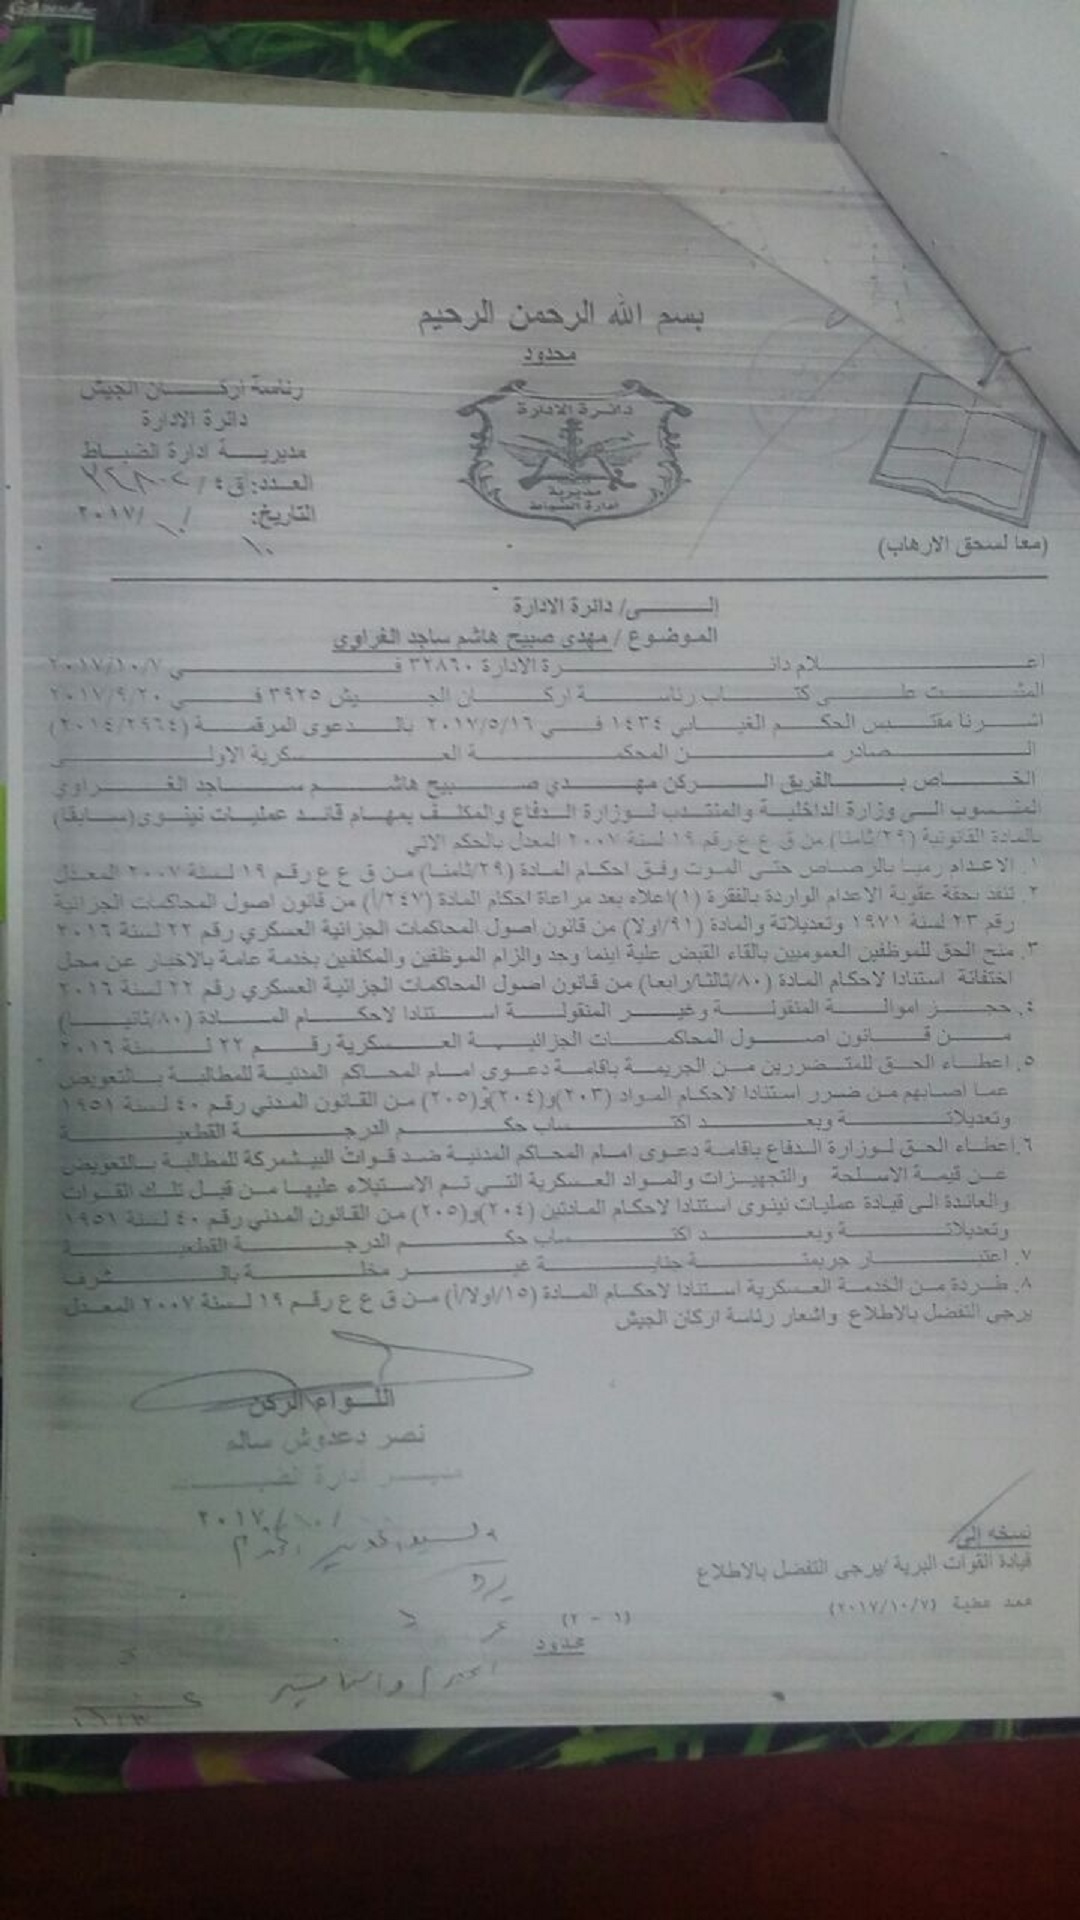 بسم الله الرحمن الرحيم
محدود
رئاسة اركان الجيش
دائرة الادارة
مديرية ادارة الضباط
العدد: ق٤/
التاريخ: ١٠/ ١٠/ ٢٠١٧
دائرة الادارة
مديرية
ادارة الضباط
(معا لسحق الارهاب)
إلى/ دائرة الادارة
الموضوع / مهدي صبيح هاشم ساجد الغراوي
اعلام دائرة الادارة ٣٢٨٦٠ في ٢٠١٧/١٠/٧
المثبت على كتاب رئاسة اركان الجيش ٣٩٢٥ في ٢٠١٧/٩/٢٠
اشرنا مقتبس الحكم الغيابي ١٤٣٤ في ٢٠١٧/٥/١٦ بالدعوى المرقمة (٢٠١٤/٢٩٦٤)
الصادر من المحكمة العسكرية الاولى
الخاص بالفريق الركن مهدي صبيح هاشم ساجد الغراوي
المنسوب الى وزارة الداخلية والمنتدب لوزارة الدفاع والمكلف بمهام قائد عمليات نينوى(سابقا)
بالمادة القانونية (٢٩/ثامنا) من ق ع ع رقم ١٩ لسنة ٢٠٠٧ المعدل بالحكم الاتي
١. الاعدام رميا بالرصاص حتى الموت وفق احكام المادة (٢٩/ثامنا) من ق ع ع رقم ١٩ لسنة ٢٠٠٧ المعدل
٢. تنفذ بحقة عقوبة الاعدام الواردة بالفقرة (١)اعلاه بعد مراعاة احكام المادة (٢٤٧/أ) من قانون اصول المحاكمات الجزائية
رقم ٢٣ لسنة ١٩٧١ وتعديلاتة والمادة (٩١/اولا) من قانون اصول المحاكمات الجزائية العسكري رقم ٢٢ لسنة ٢٠١٦
٣. منح الحق للموظفين العموميين بالقاء القبض علية اينما وجد والزام الموظفين والمكلفين بخدمة عامة بالاخبار عن محل
اختفائة استنادا لاحكام المادة (٨٠/ثالثا/رابعا) من قانون اصول المحاكمات الجزائية العسكري رقم ٢٢ لسنة ٢٠١٦
٤. حجز اموالة المنقولة وغير المنقولة استنادا لاحكام المادة (٨٠/ثانيا)
من قانون اصول المحاكمات الجزائية العسكرية رقم ٢٢ لسنة ٢٠١٦
٥. اعطاء الحق للمتضررين من الجريمة باقامة دعوى امام المحاكم المدنية للمطالبة بالتعويض
عما اصابهم من ضرر استنادا لاحكام المواد (٢٠٣)و(٢٠٤)و(٢٠٥) من القانون المدني رقم ٤٠ لسنة ١٩٥١
وتعديلاتة وبعد اكتساب حكم الدرجة القطعية
٦. اعطاء الحق لوزارة الدفاع باقامة دعوى امام المحاكم المدنية ضد قوات البيشمركة للمطالبة بالتعويض
عن قيمة الاسلحة والتجهيزات والمواد العسكرية التي تم الاستيلاء عليها من قبل تلك القوات
والعائدة الى قيادة عمليات نينوى استنادا لاحكام المادتين (٢٠٤)و(٢٠٥) من القانون المدني رقم ٤٠ لسنة ١٩٥١
وتعديلاتة وبعد اكتساب حكم الدرجة القطعية
٧. اعتبار جريمتة جناية غير مخلة بالشرف
٨. طردة من الخدمة العسكرية استنادا لاحكام المادة (١٥/اولا/أ) من ق ع ع رقم ١٩ لسنة ٢٠٠٧ المعدل
يرجى التفضل بالاطلاع واشعار رئاسة اركان الجيش
اللواء الركن
نصر دعدوش سالم
مدير ادارة الضباط
/١٠/ ٢٠١٧
نسخه إلى
قيادة القوات البرية /يرجى التفضل بالاطلاع
(٢٠١٧/١٠/٧)
(١ - ٢)
محدود